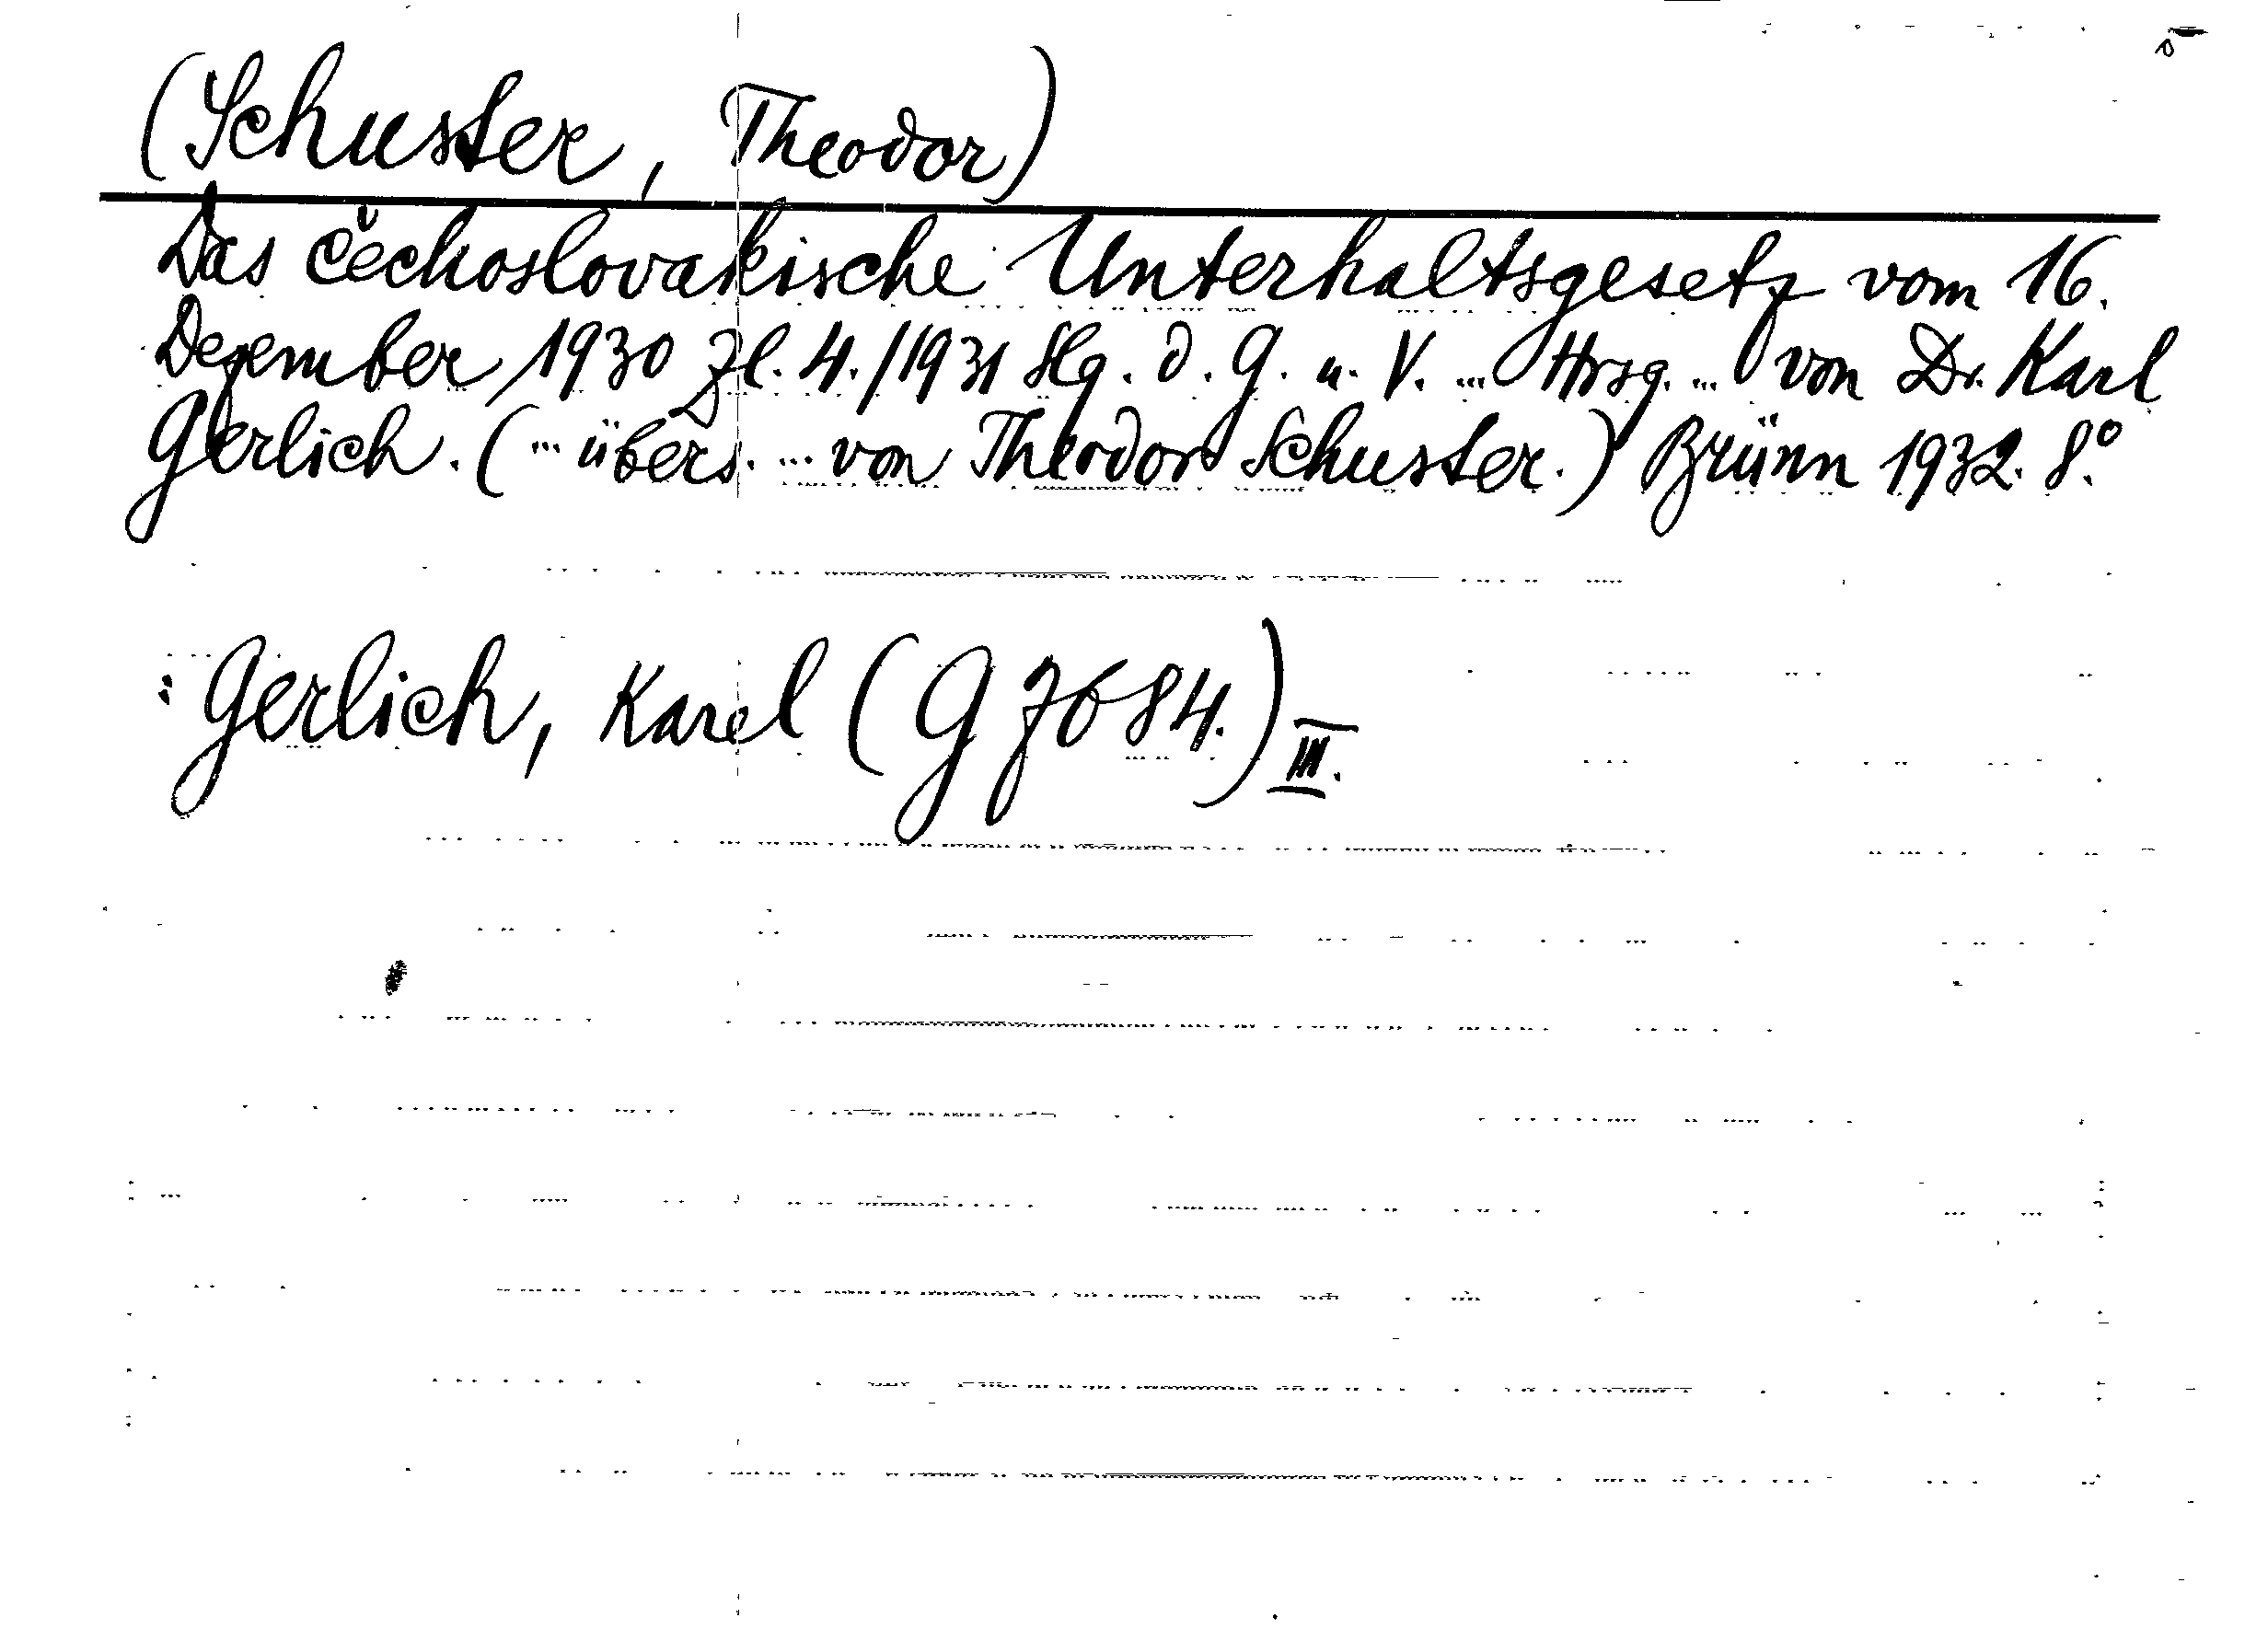 (Schuster, Theodor)
Das čechoslovakische Unterhaltsgesetz vom 16.
Dezember 1930 Zl. 4./1931 Slg. d. G. u. V. ... Hrsg. ... von Dr. Karl
Gerlich. (... übers. ... von Theodor Schuster.) Brünn 1932. 8°.
: Gerlich, Karel (G 7684.) III.